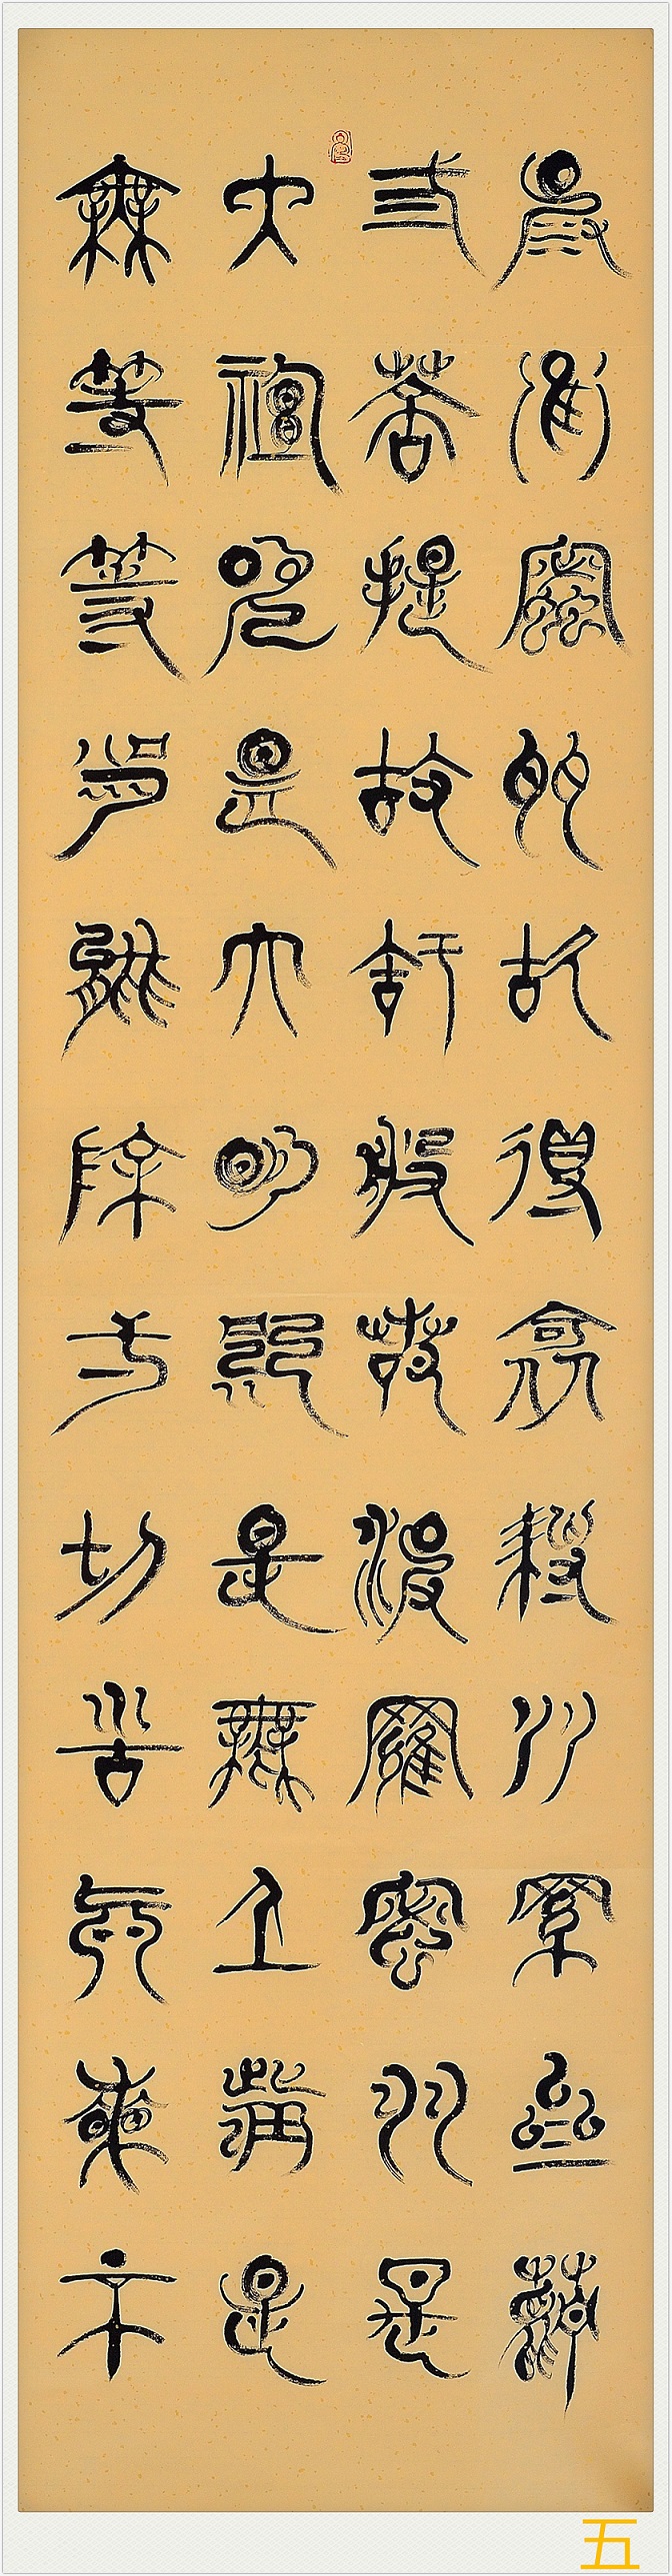 波羅蜜多故得阿耨多羅三藐
三菩提故知般若波羅蜜多是
大神咒是大明咒是無上咒是
無等等咒能除一切苦真實不
五